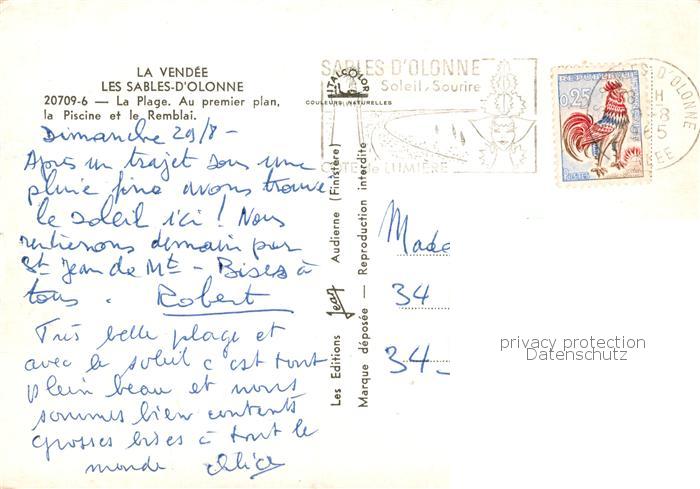 LA VENDÉE
LES SABLES-D'OLONNE
20709-6 — La Plage. Au premier plan,
la Piscine et le Remblai.
Dimanche 29/8 -
Après un trajet sous une
pluie fine avons trouvé
le soleil ici ! Nous
rentrerons demain par
St Jean de Mts - Bises à
tous. Robert
Très belle plage et
avec le soleil c est tout
plein beau et nous
sommes bien contents
grosses bises à tout le
monde Alice
ITALCOLOR
COULEURS NATURELLES
Les Editions Jean Audierne (Finistère)
Marque déposée — Reproduction interdite
SABLES D'OLONNE
Soleil, Sourire
CÔTE de LUMIÈRE
0,25
POSTES
SABLES-D'OLONNE
Mada
34
34-
privacy protection
Datenschutz